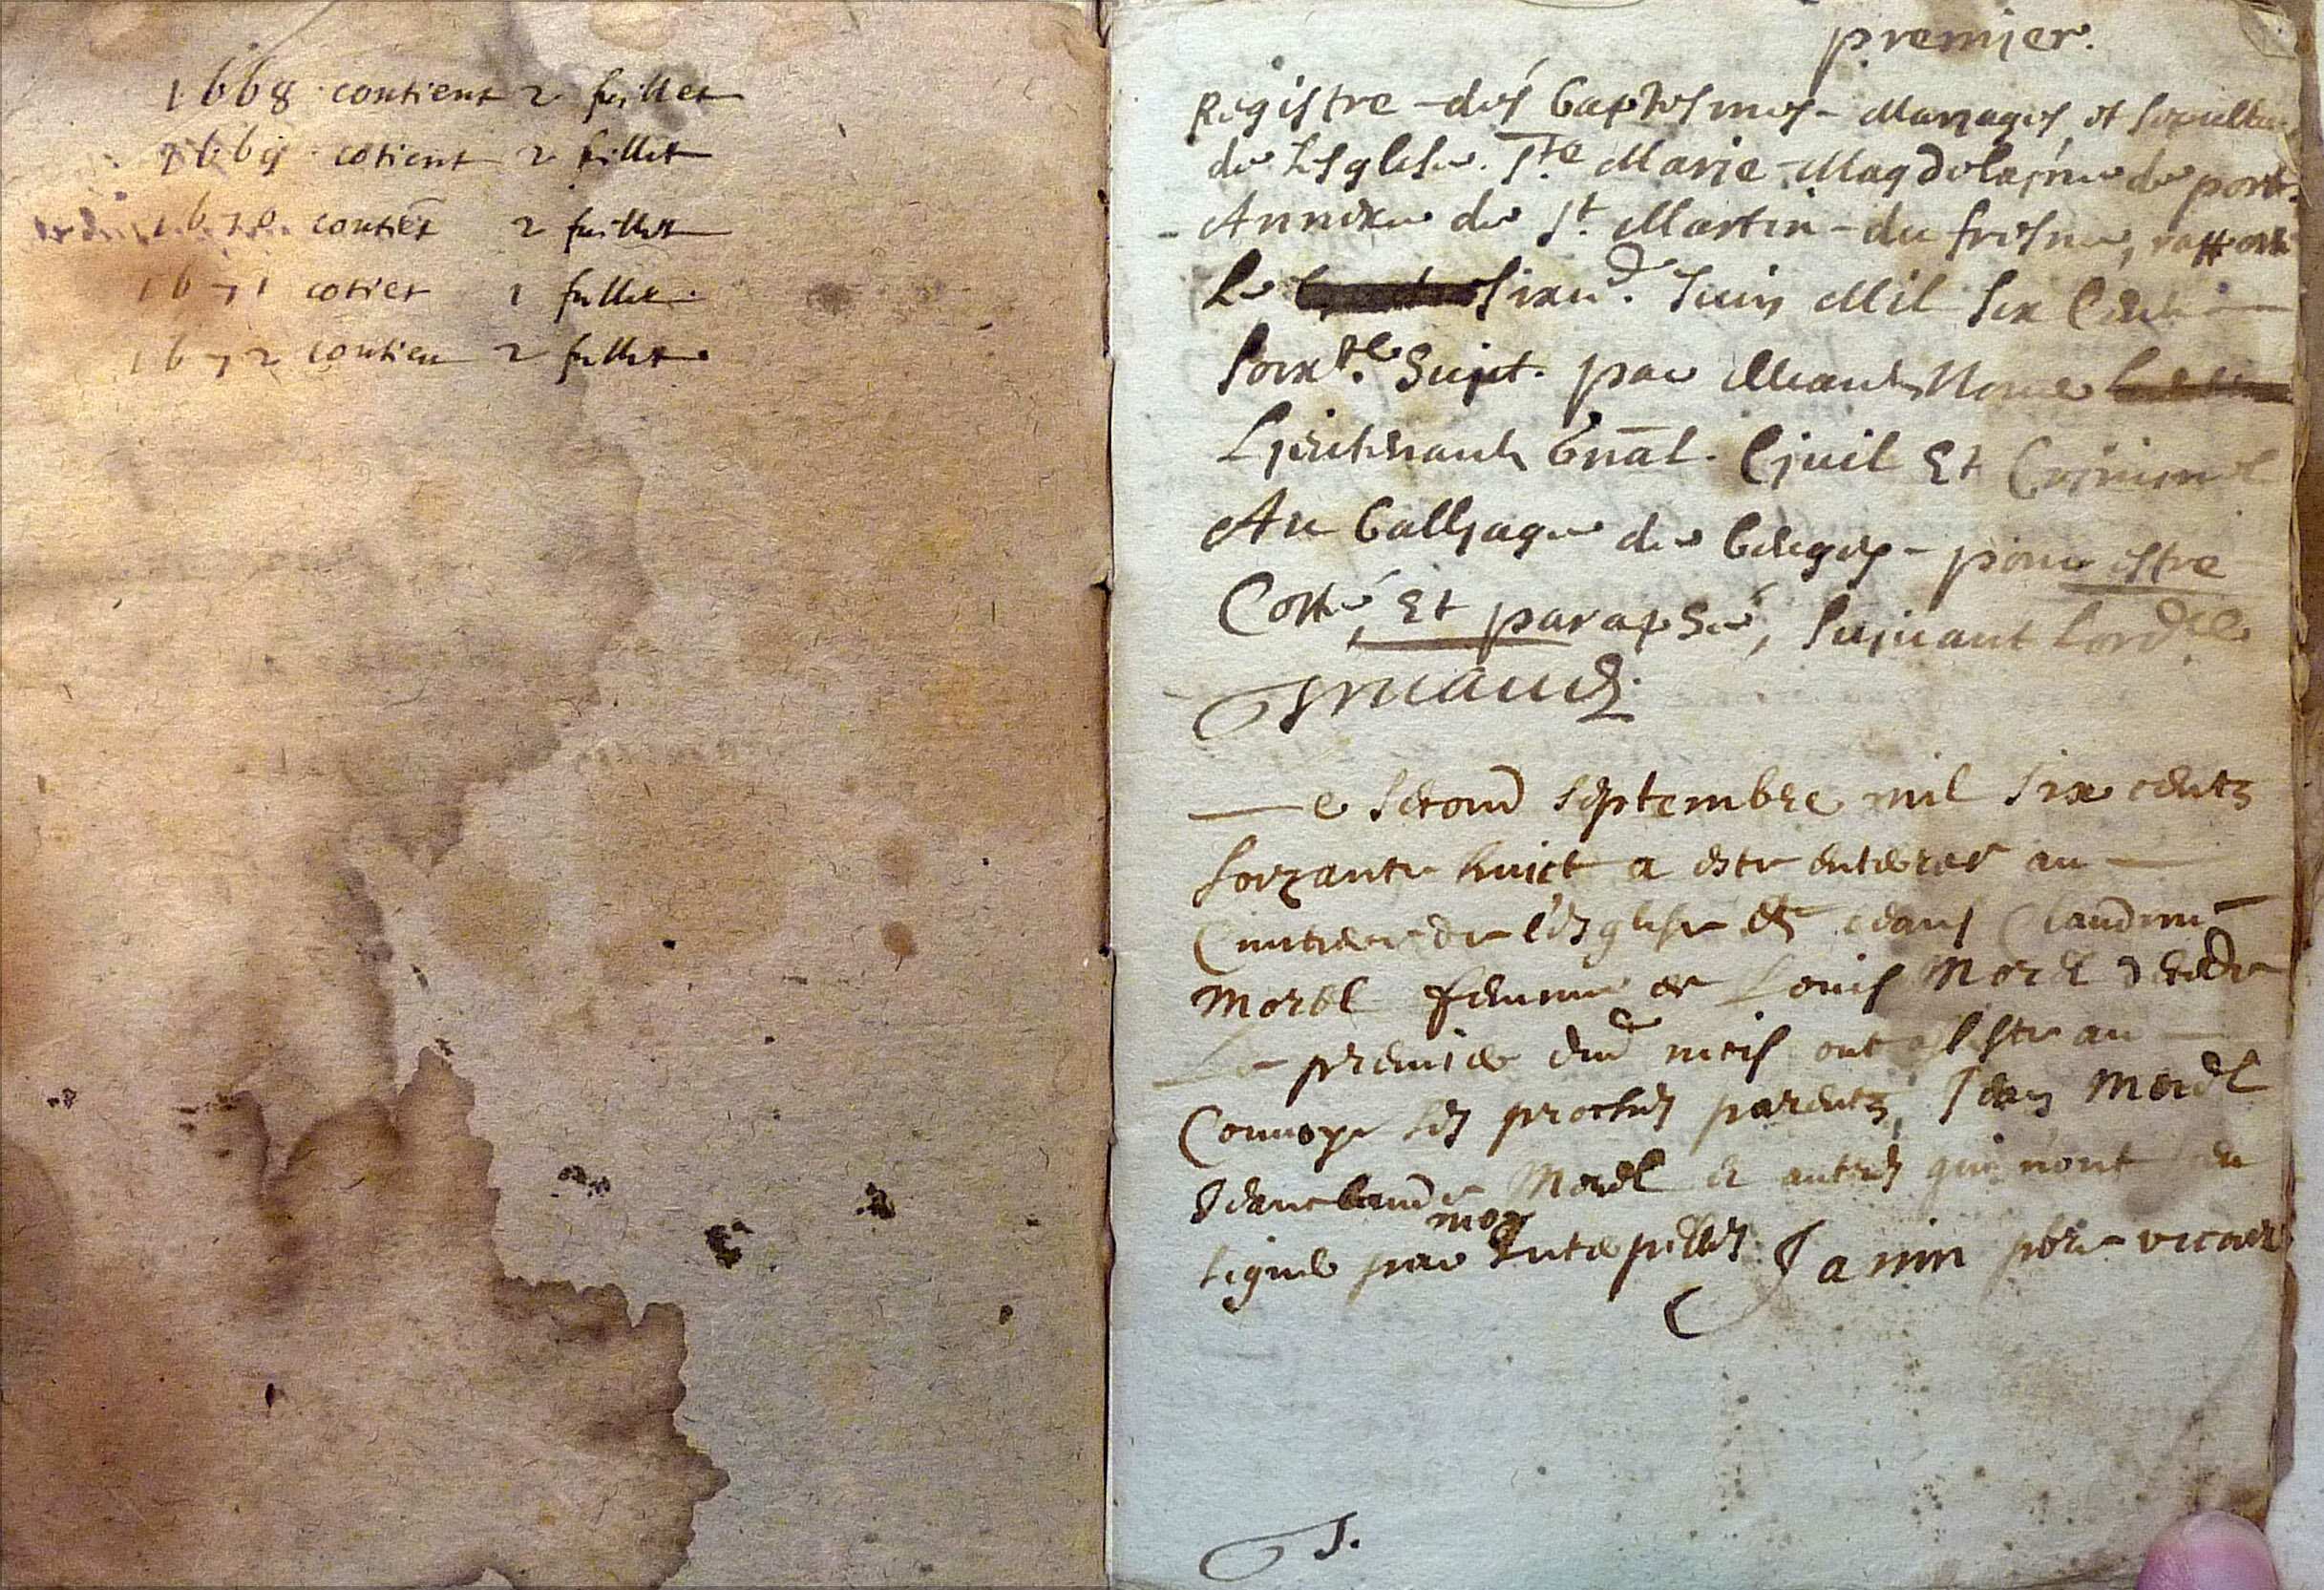 1668 contient 2 fuillet
1669 cotient 2 fillet
1670 contiēt 2 fuillet
1671 cotiet 1 fullet
1672 contien 2 fullet
premier.
Registre des baptesmes Mariages et sepultu
de Lesglise Ste Marie Magdelaine de port
Annexe de St Martin du fresne, rapporté
Le sixe. Juin Mil six Cent
soixte. huict. par Nous
Lieutenant Gnāl. Ciuil Et Criminel
Au balliage de beugey pour estre
Cotté, Et paraphé, suiuant Lordce
e second septembre mil six centz
soixante huict a este enterree au
Cimtiere de l'esglise Claudine
Morel femme de Louis Morel decedee
premier dud mois ont assiste au
Conuoye ses proches parentz, Jean Morel
Jeanclaude Morel et autres qui n'ont
signe par moy Interpelles Janin pbre vicaire
J.